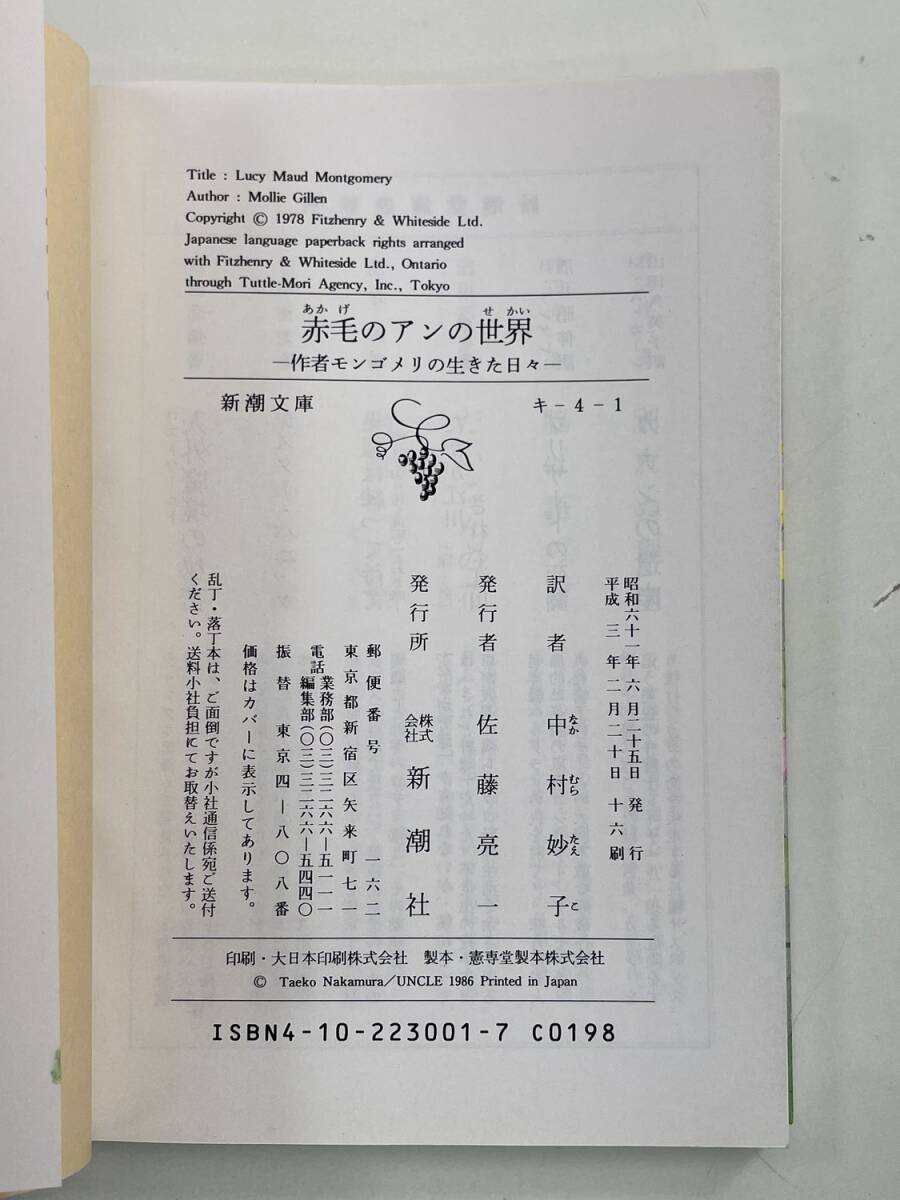 Title : Lucy Maud Montgomery
Author : Mollie Gillen
Copyright © 1978 Fitzhenry & Whiteside Ltd.
Japanese language paperback rights arranged
with Fitzhenry & Whiteside Ltd., Ontario
through Tuttle-Mori Agency, Inc., Tokyo
あかげ せかい
赤毛のアンの世界
―作者モンゴメリの生きた日々―
新潮文庫 キ-4-1
昭和六十一年六月二十五日発行
平成三年二月二十日十六刷
訳者 中村妙子
なか むら たえ こ
発行者 佐藤亮一
発行所 株式会社 新潮社
郵便番号 一六二
東京都新宿区矢来町七一
電話 業務部(〇三)三二六六―五一一一
編集部(〇三)三二六六―五四四〇
振替 東京四―八〇八番
価格はカバーに表示してあります。
乱丁・落丁本は、ご面倒ですが小社通信係宛ご送付
ください。送料小社負担にてお取替えいたします。
印刷・大日本印刷株式会社 製本・憲専堂製本株式会社
© Taeko Nakamura/UNCLE 1986 Printed in Japan
ISBN4-10-223001-7 C0198